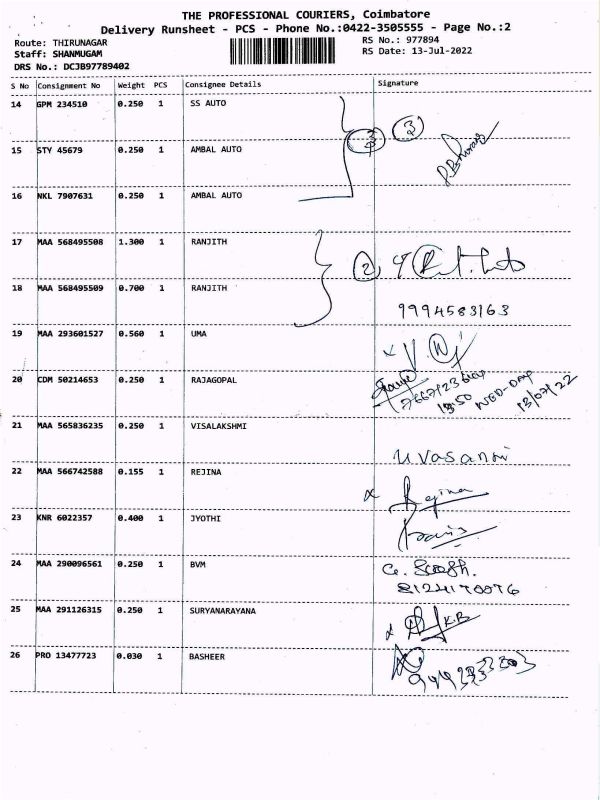 THE PROFESSIONAL COURIERS, Coimbatore
Delivery Runsheet - PCS - Phone No.:0422-3505555 - Page No.:2
Route: THIRUNAGAR
RS No.: 977894
Staff: SHANMUGAM
RS Date: 13-Jul-2022
DRS No.: DCJB97789402
S No Consignment No Weight PCS Consignee Details Signature
14 GPM 234510 0.250 1 SS AUTO
3 3
15 STY 45679 0.250 1 AMBAL AUTO
16 NKL 7907631 0.250 1 AMBAL AUTO
17 MAA 568495508 1.300 1 RANJITH
2
18 MAA 568495509 0.700 1 RANJITH
9994583163
19 MAA 293601527 0.560 1 UMA
20 CDM 50214653 0.250 1 RAJAGOPAL
13:50 WED-DAY 13/07/22
21 MAA 565836235 0.250 1 VISALAKSHMI
U Vasanthi
22 MAA 566742588 0.155 1 REJINA
Rejina
23 KNR 6022357 0.400 1 JYOTHI
24 MAA 290096561 0.250 1 BVM
8124170076
25 MAA 291126315 0.250 1 SURYANARAYANA
K.B
26 PRO 13477723 0.030 1 BASHEER